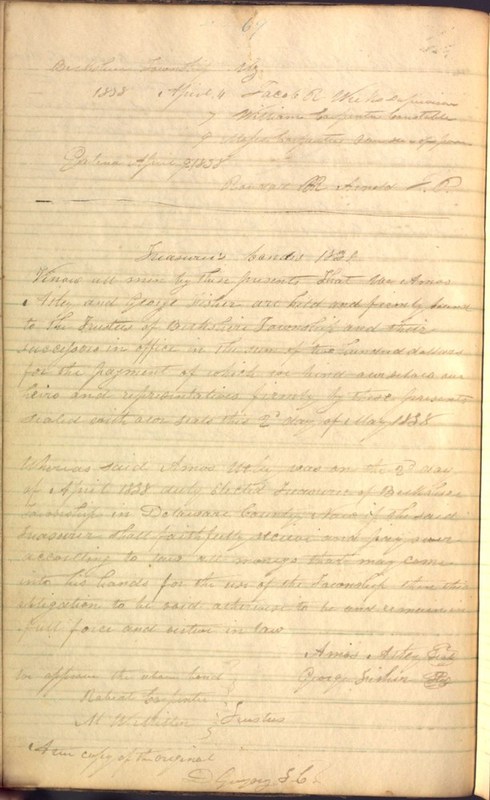 67
Berkshire Township
1838 April 4 Jacob R
7 William Carpenter Constable
9 Moses Carpenter
April 9 1838
Arnold
Treasurer's bonds 1838
Know all men by these presents That we Amos
and George are held and firmly bound
to the Trustees of Berkshire Township and their
successors in office in the sum of two hundred dollars
for the payment of which we bind ourselves our
heirs and representatives firmly by these presents
sealed with our seals this 2d day of May 1838
Whereas said Amos was on the 2d day
of April 1838 duly Elected Treasurer of Berkshire
Township in Delaware County Now if the said
treasurer shall faithfully receive and pay over
according to law all moneys that may come
into his hands for the use of the Township then this
obligation to be void otherwise to be and remain in
full force and virtue in law
Amos
George
We approve the above bond
Carpenter
Trustees
A true copy of the original